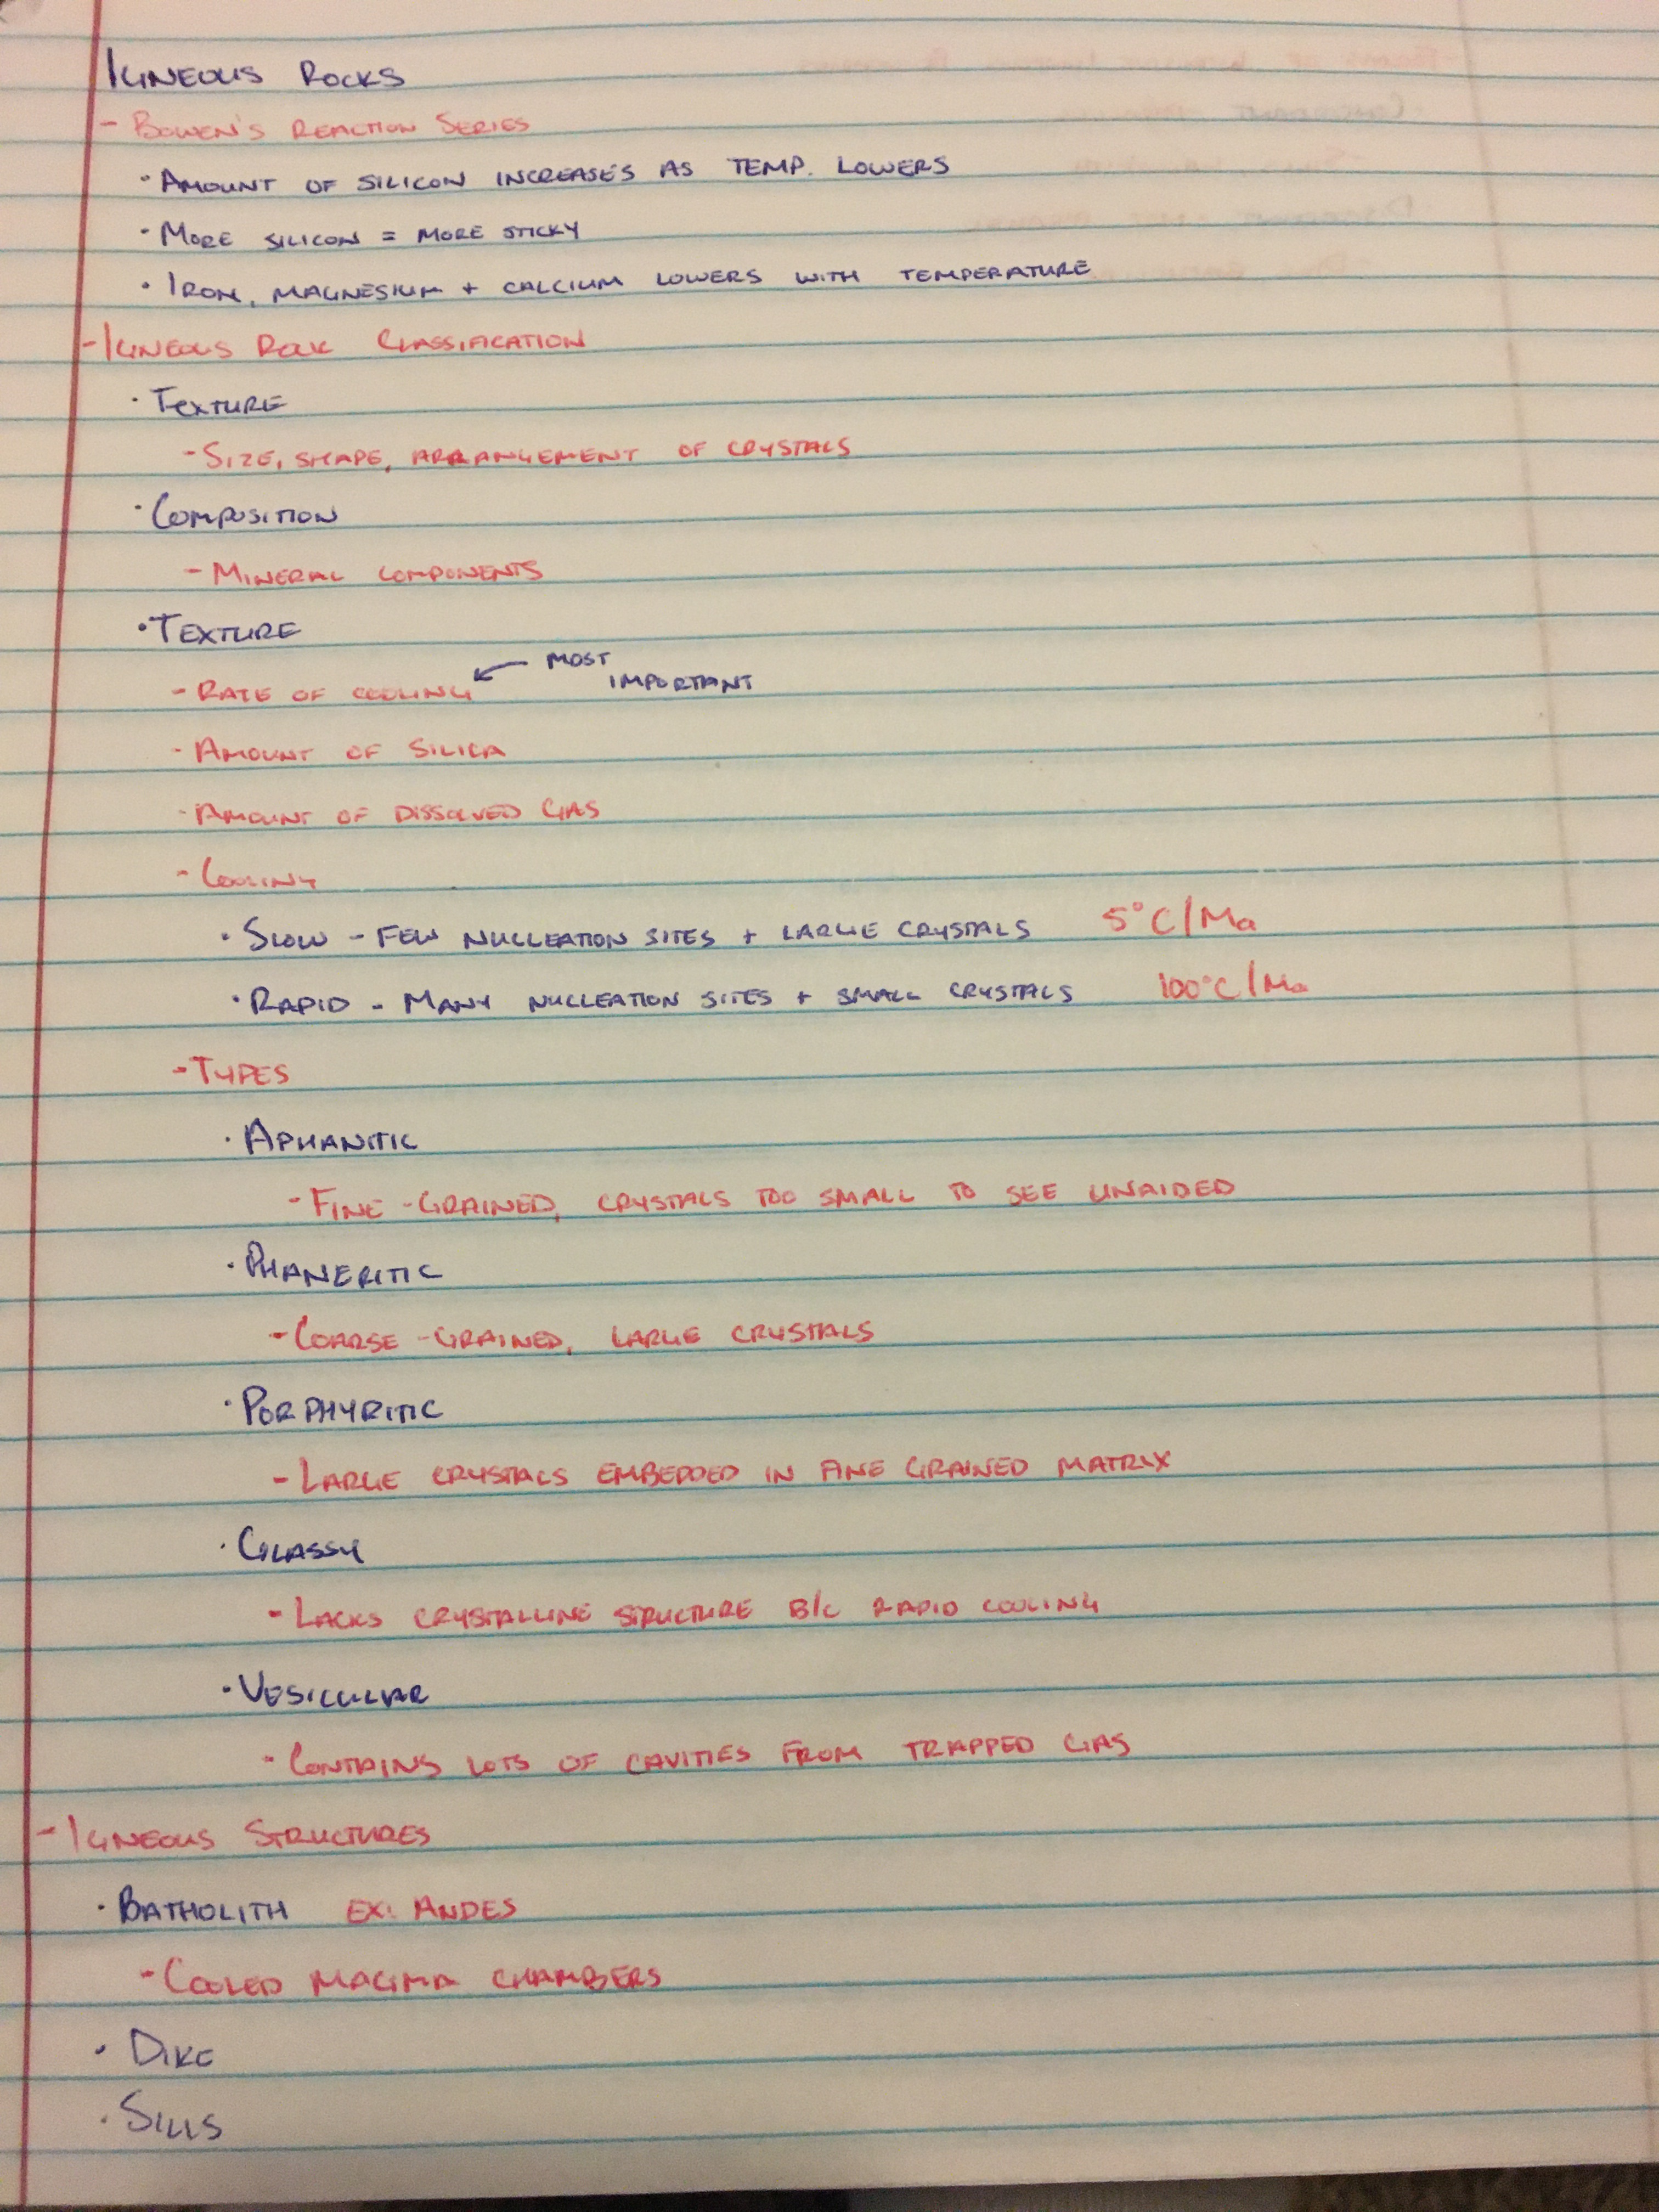 IGNEOUS ROCKS
- BOWEN'S REACTION SERIES
• AMOUNT OF SILICON INCREASES AS TEMP. LOWERS
• MORE SILICON = MORE STICKY
• IRON, MAGNESIUM + CALCIUM LOWERS WITH TEMPERATURE
- IGNEOUS ROCK CLASSIFICATION
• TEXTURE
- SIZE, SHAPE, ARRANGEMENT OF CRYSTALS
• COMPOSITION
- MINERAL COMPONENTS
• TEXTURE
- RATE OF COOLING ← MOST IMPORTANT
- AMOUNT OF SILICA
- AMOUNT OF DISSOLVED GAS
- COOLING
• SLOW - FEW NUCLEATION SITES + LARGE CRYSTALS 5°C/Ma
• RAPID - MANY NUCLEATION SITES + SMALL CRYSTALS 100°C/Ma
- TYPES
• APHANITIC
- FINE-GRAINED, CRYSTALS TOO SMALL TO SEE UNAIDED
• PHANERITIC
- COARSE-GRAINED, LARGE CRYSTALS
• PORPHYRITIC
- LARGE CRYSTALS EMBEDDED IN FINE GRAINED MATRIX
• GLASSY
- LACKS CRYSTALLINE STRUCTURE B/C RAPID COOLING
• VESICULAR
- CONTAINS LOTS OF CAVITIES FROM TRAPPED GAS
- IGNEOUS STRUCTURES
• BATHOLITH EX: ANDES
- COOLED MAGMA CHAMBERS
• DIKE
• SILLS